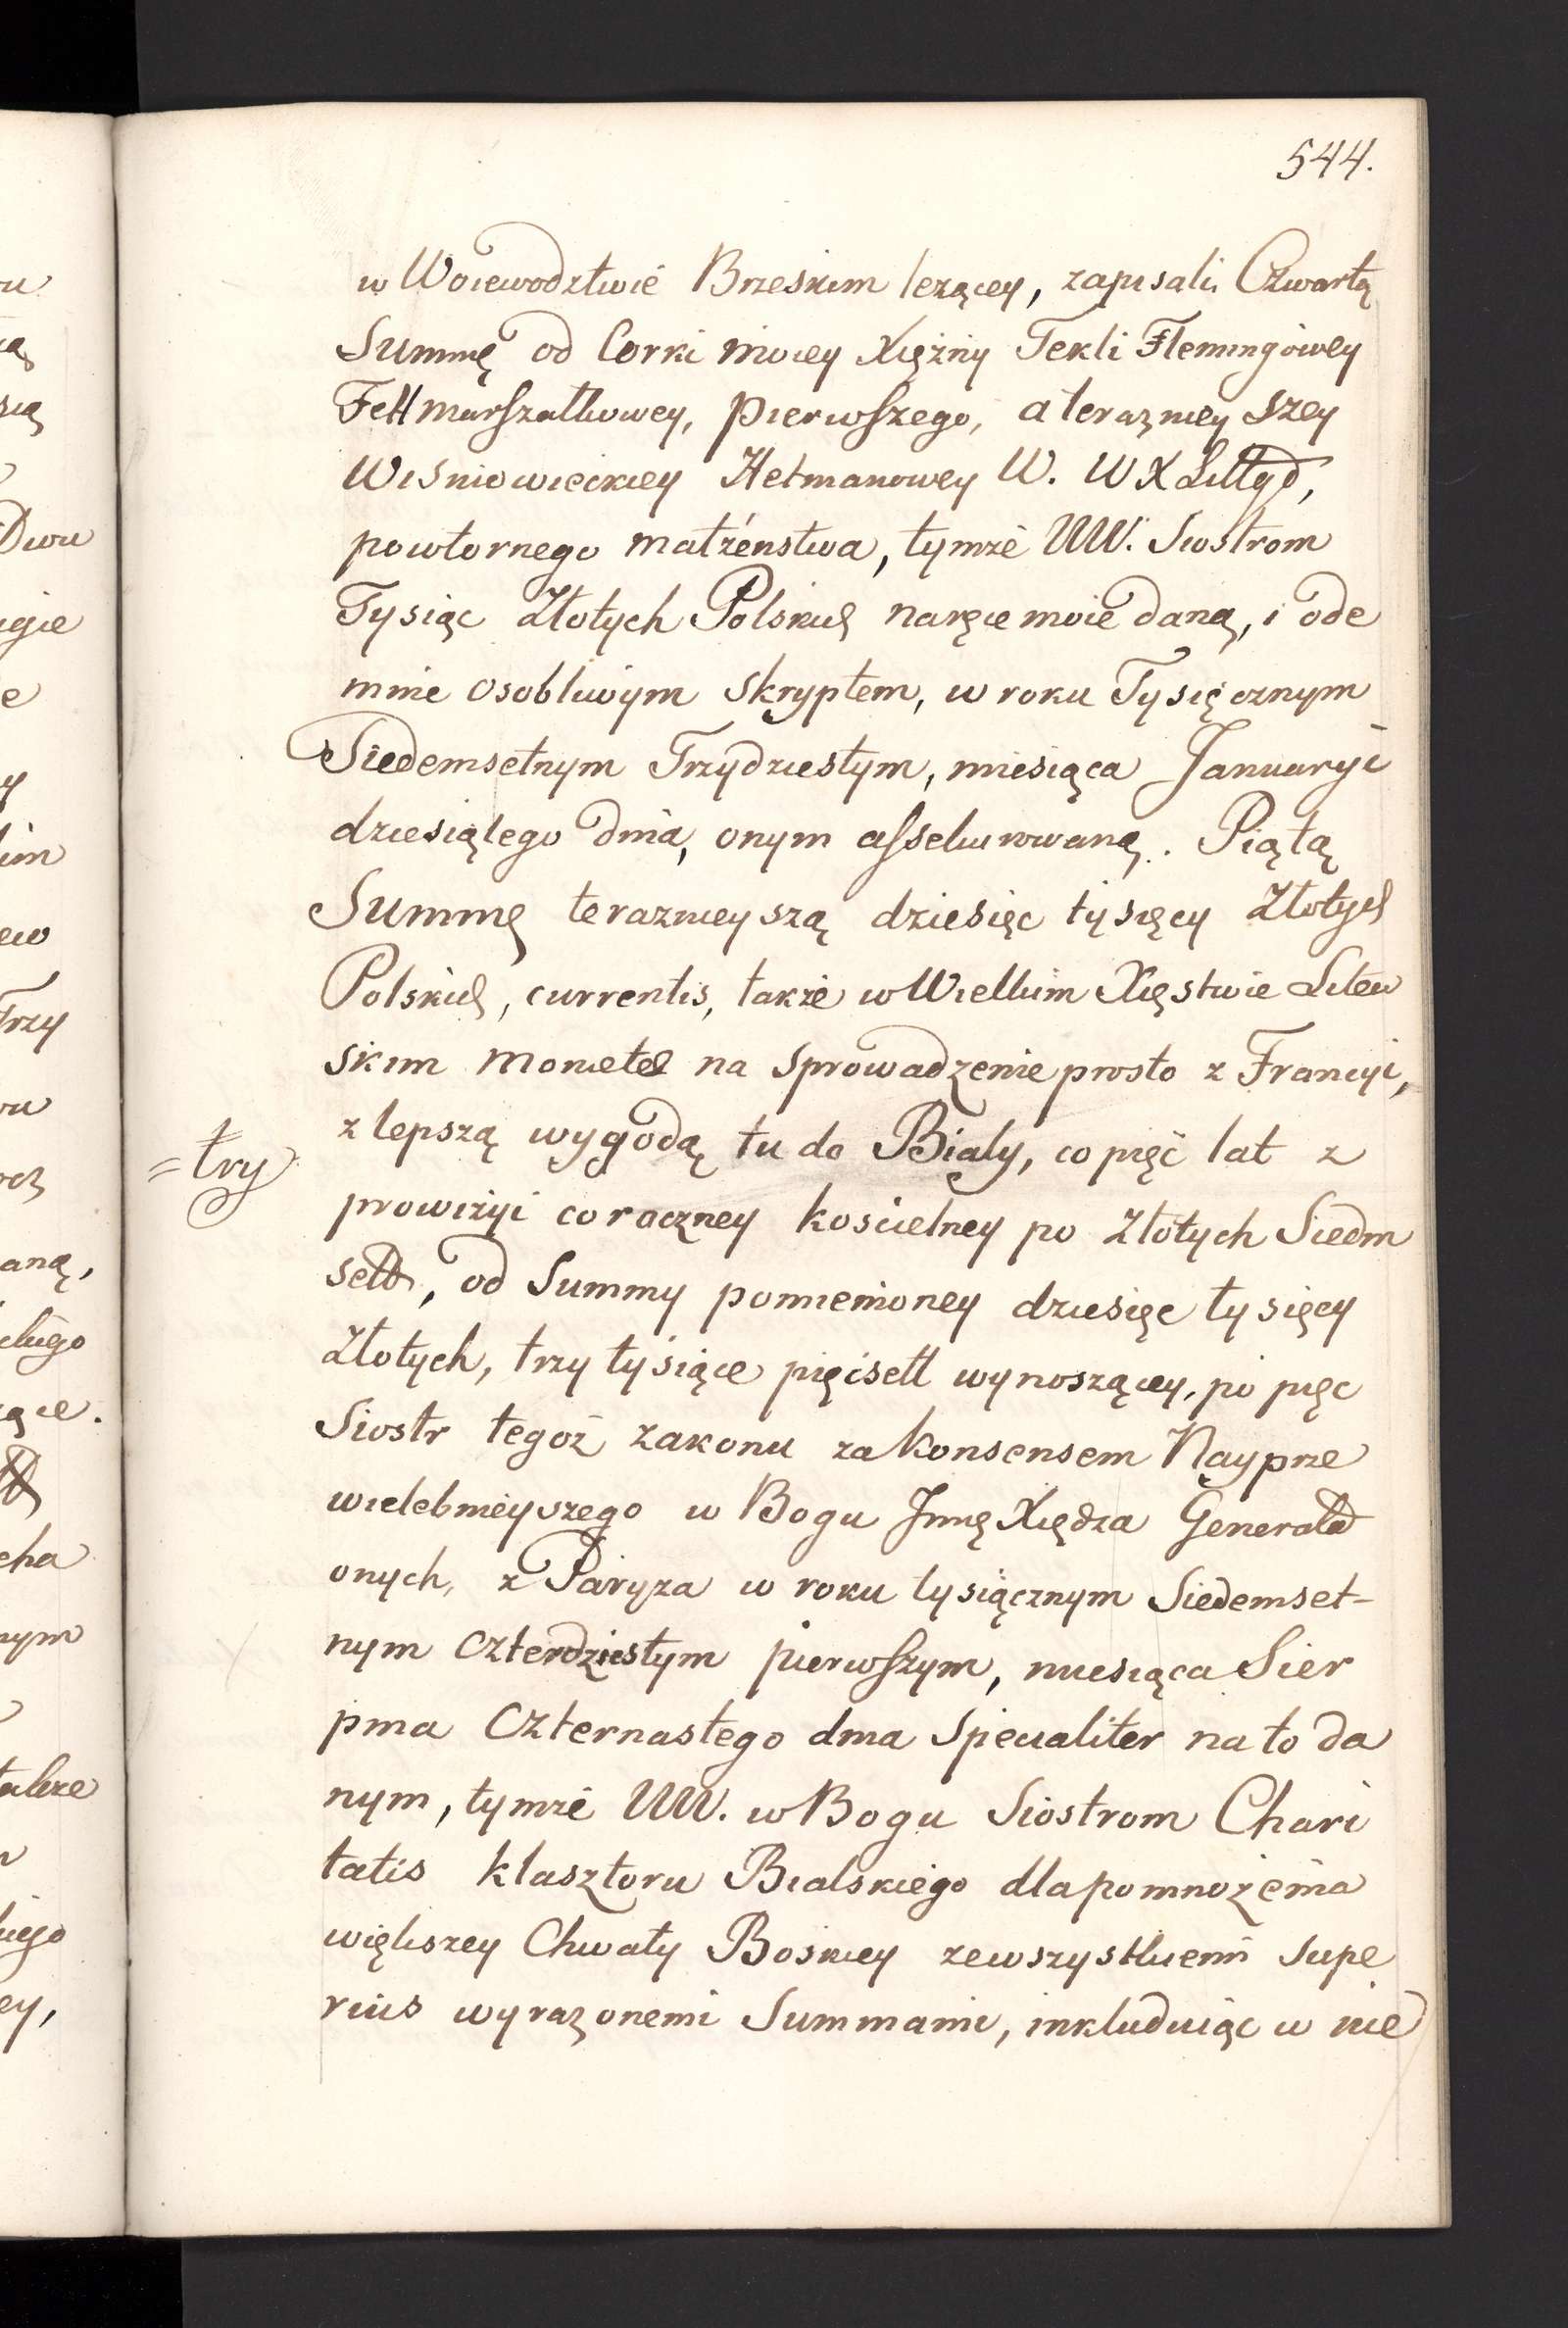 544.
w Woiewodztwie Brzeskim leżącey, zapisali. Czwartą
Summę od Corki moiey Xiężny Tekli Flemingowey
Feltmarszałkowey, pierwszego, a teraznieyszey
Wiśniowieckiey Hetmanowey W. W X Litt
powtornego małżeństwa, tymże WW. Siostrom
Tysiąc Złotych Polskich naręce moie daną, i ode
mnie osobliwym skryptem, w roku Tysięcznym
Siedemsetnym Trzydziestym, miesiąca Januaryi
dziesiątego dnia, onym assekurowaną. Piątą
Summę teraznieyszą dziesięc tysięcy Złotych
Polskich, currentis, także w Wielkim Xięstwie Litew
skim monetę na sprowadzenie prosto z Francyi,
z lepszą wygodą tu do Biały, co pięć lat z
=try
prowizyi coroczney koscielney po Złotych Siedm
sett, od Summy pomienioney dziesięc tysięcy
Złotych, trzy tysiące pięcisett wynoszącey, po pięc
Siostr tegoż zakonu za Konsensem Nayprze
wielebnieyszego w Bogu Jmę Xiędza Generała
onych, z Paryża w roku tysiącznym Siedemset-
nym czterdziestym pierwszym, miesiąca Sier
pnia Czternastego dnia specialiter na to da
nym, tymże WW. w Bogu Siostrom Chari
tatis klasztoru Bialskiego dla pomnożenia
większey Chwały Boskiey zewszystkiemi supe
rius wyrażonemi Summami, inkluduiąc w nie